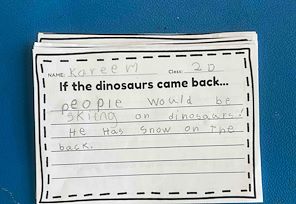 NAME: Kareem Class: 2D
If the dinosaurs came back...
people would be
skiing on dinosaurs!
He Has Snow on The
back.